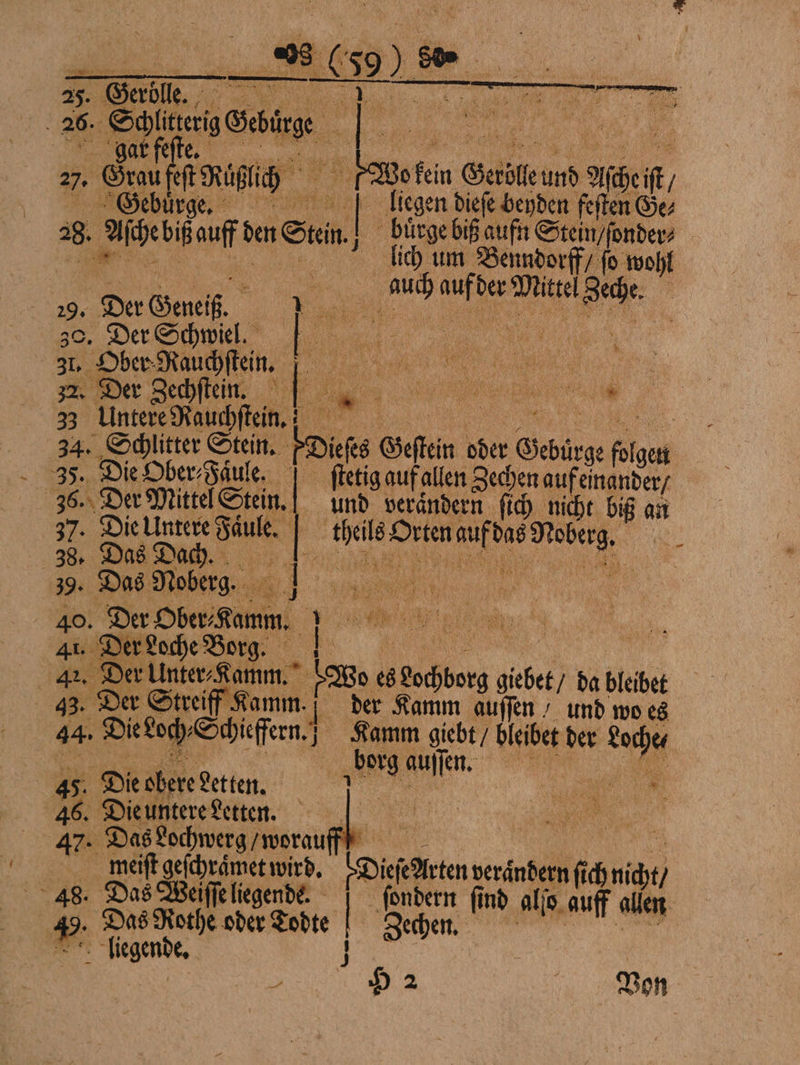 (59)
25. Geroͤlle.
26. Schlitterig Gebuͤrge
gar feſte.
27. Grau feſt Ruͤßlich
Gebuͤrge.
28. Aſche biß auff den Stein.
Wo kein Geroͤlle und Aſche iſt /
liegen dieſe beyden feſten Ge⸗
buͤrge biß aufn Stein / ſonder⸗
lich um Benndorff / ſo wohl
auch auf der Mittel Zeche.
29. Der Geneiß.
30. Der Schwiel.
31. Ober-Rauchſtein.
32. Der Zechſtein.
33 Untere Rauchſtein.
34. Schlitter Stein.
35. Die Ober⸗Faͤule.
36. Der Mittel Stein.
37. Die Untere Faͤule.
38. Das Dach.
39. Das Noberg.
Dieſes Geſtein oder Gebuͤrge folgen
ſtetig auf allen Zechen auf einander /
und veraͤndern ſich nicht biß an
theils Orten auf das Noberg.
40. Der Ober⸗Kamm.
41. Der Loche Borg.
42. Der Unter⸗Kamm.
43. Der Streiff Kamm.
44. Die Loch⸗Schieffern.
Wo es Lochborg giebet / da bleibet
der Kamm auſſen / und wo es
Kamm giebt / bleibet der Loche⸗
borg auſſen.
45. Die obere Letten.
46. Die untere Letten.
47. Das Lochwerg / worauff
meiſt geſchraͤmet wird.
48. Das Weiſſe liegende.
49. Das Rothe oder Todte
liegende.
Dieſe Arten veraͤndern ſich nicht /
ſondern ſind alſo auff allen
Zechen.
H 2
Von